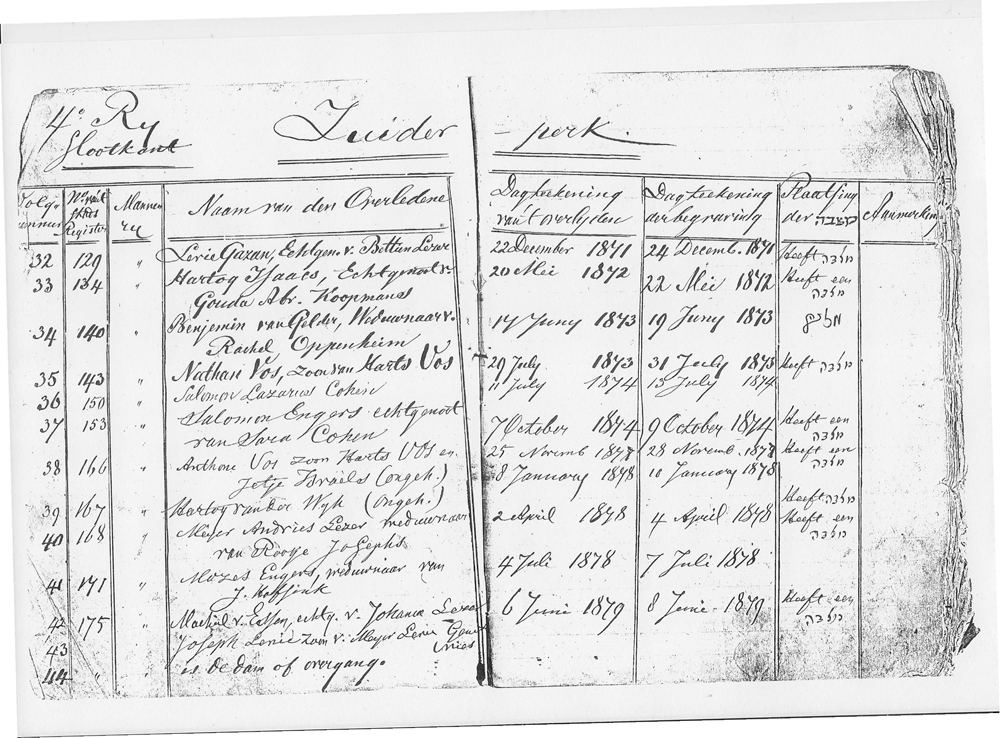 4e Ry Zuider - perk.
Slootkant
Volgnummer No uit het Register Mannen ry Naam van den Overledene Dagteekening van 't overlyden Dagteekening der begraving Plaatsing der מצבה Aanmerking
32 129 " Levie Gazan, Echtgen. v. Bettun Lezer 22 December 1871 24 Decemb. 1871 Heeft מצבה
33 134 " Hartog Isaacs, Echtgenoot v. 20 Mei 1872 22 Mei 1872 Heeft een
Gouda Abr. Koopmans מצבה
34 140 " Benjemin van Gelder, Weduwnaar v. 17 Juny 1873 19 Juny 1873
Rachel Oppenheim
35 143 " Nathan Vos, zoon van Harts Vos 29 July 1873 31 July 1873 Heeft מצבה
36 150 " Salomon Lazarus Cohen 11 July 1874 13 July 1874
37 153 " Salomon Engers echtgenoot 7 October 1874 9 October 1874 Heeft een
van Sara Cohen מצבה
38 166 " Anthone Vos zoon Harts Vos en 25 Novemb 1877 28 Novemb. 1877 Heeft een
Jetje Israels (ongeh.) מצבה
39 167 " Hartog van der Wyk (ongeh.) 8 January 1878 10 January 1878 Heeft מצבה
40 168 " Meijer Andries Lezer weduwnaar 2 April 1878 4 April 1878 Heeft een
van Roosje Josephs מצבה
41 171 " Mozes Engers, weduwnaar van 4 Juli 1878 7 Juli 1878
J.
42 175 " Machiel v. Essen, echtg. v. Johanna Lezer 6 Juni 1879 8 Junie. 1879 Heeft een
מצבה
43 Joseph Levie zoon v. Meyer Levie
44 " " is de dam of overgang.